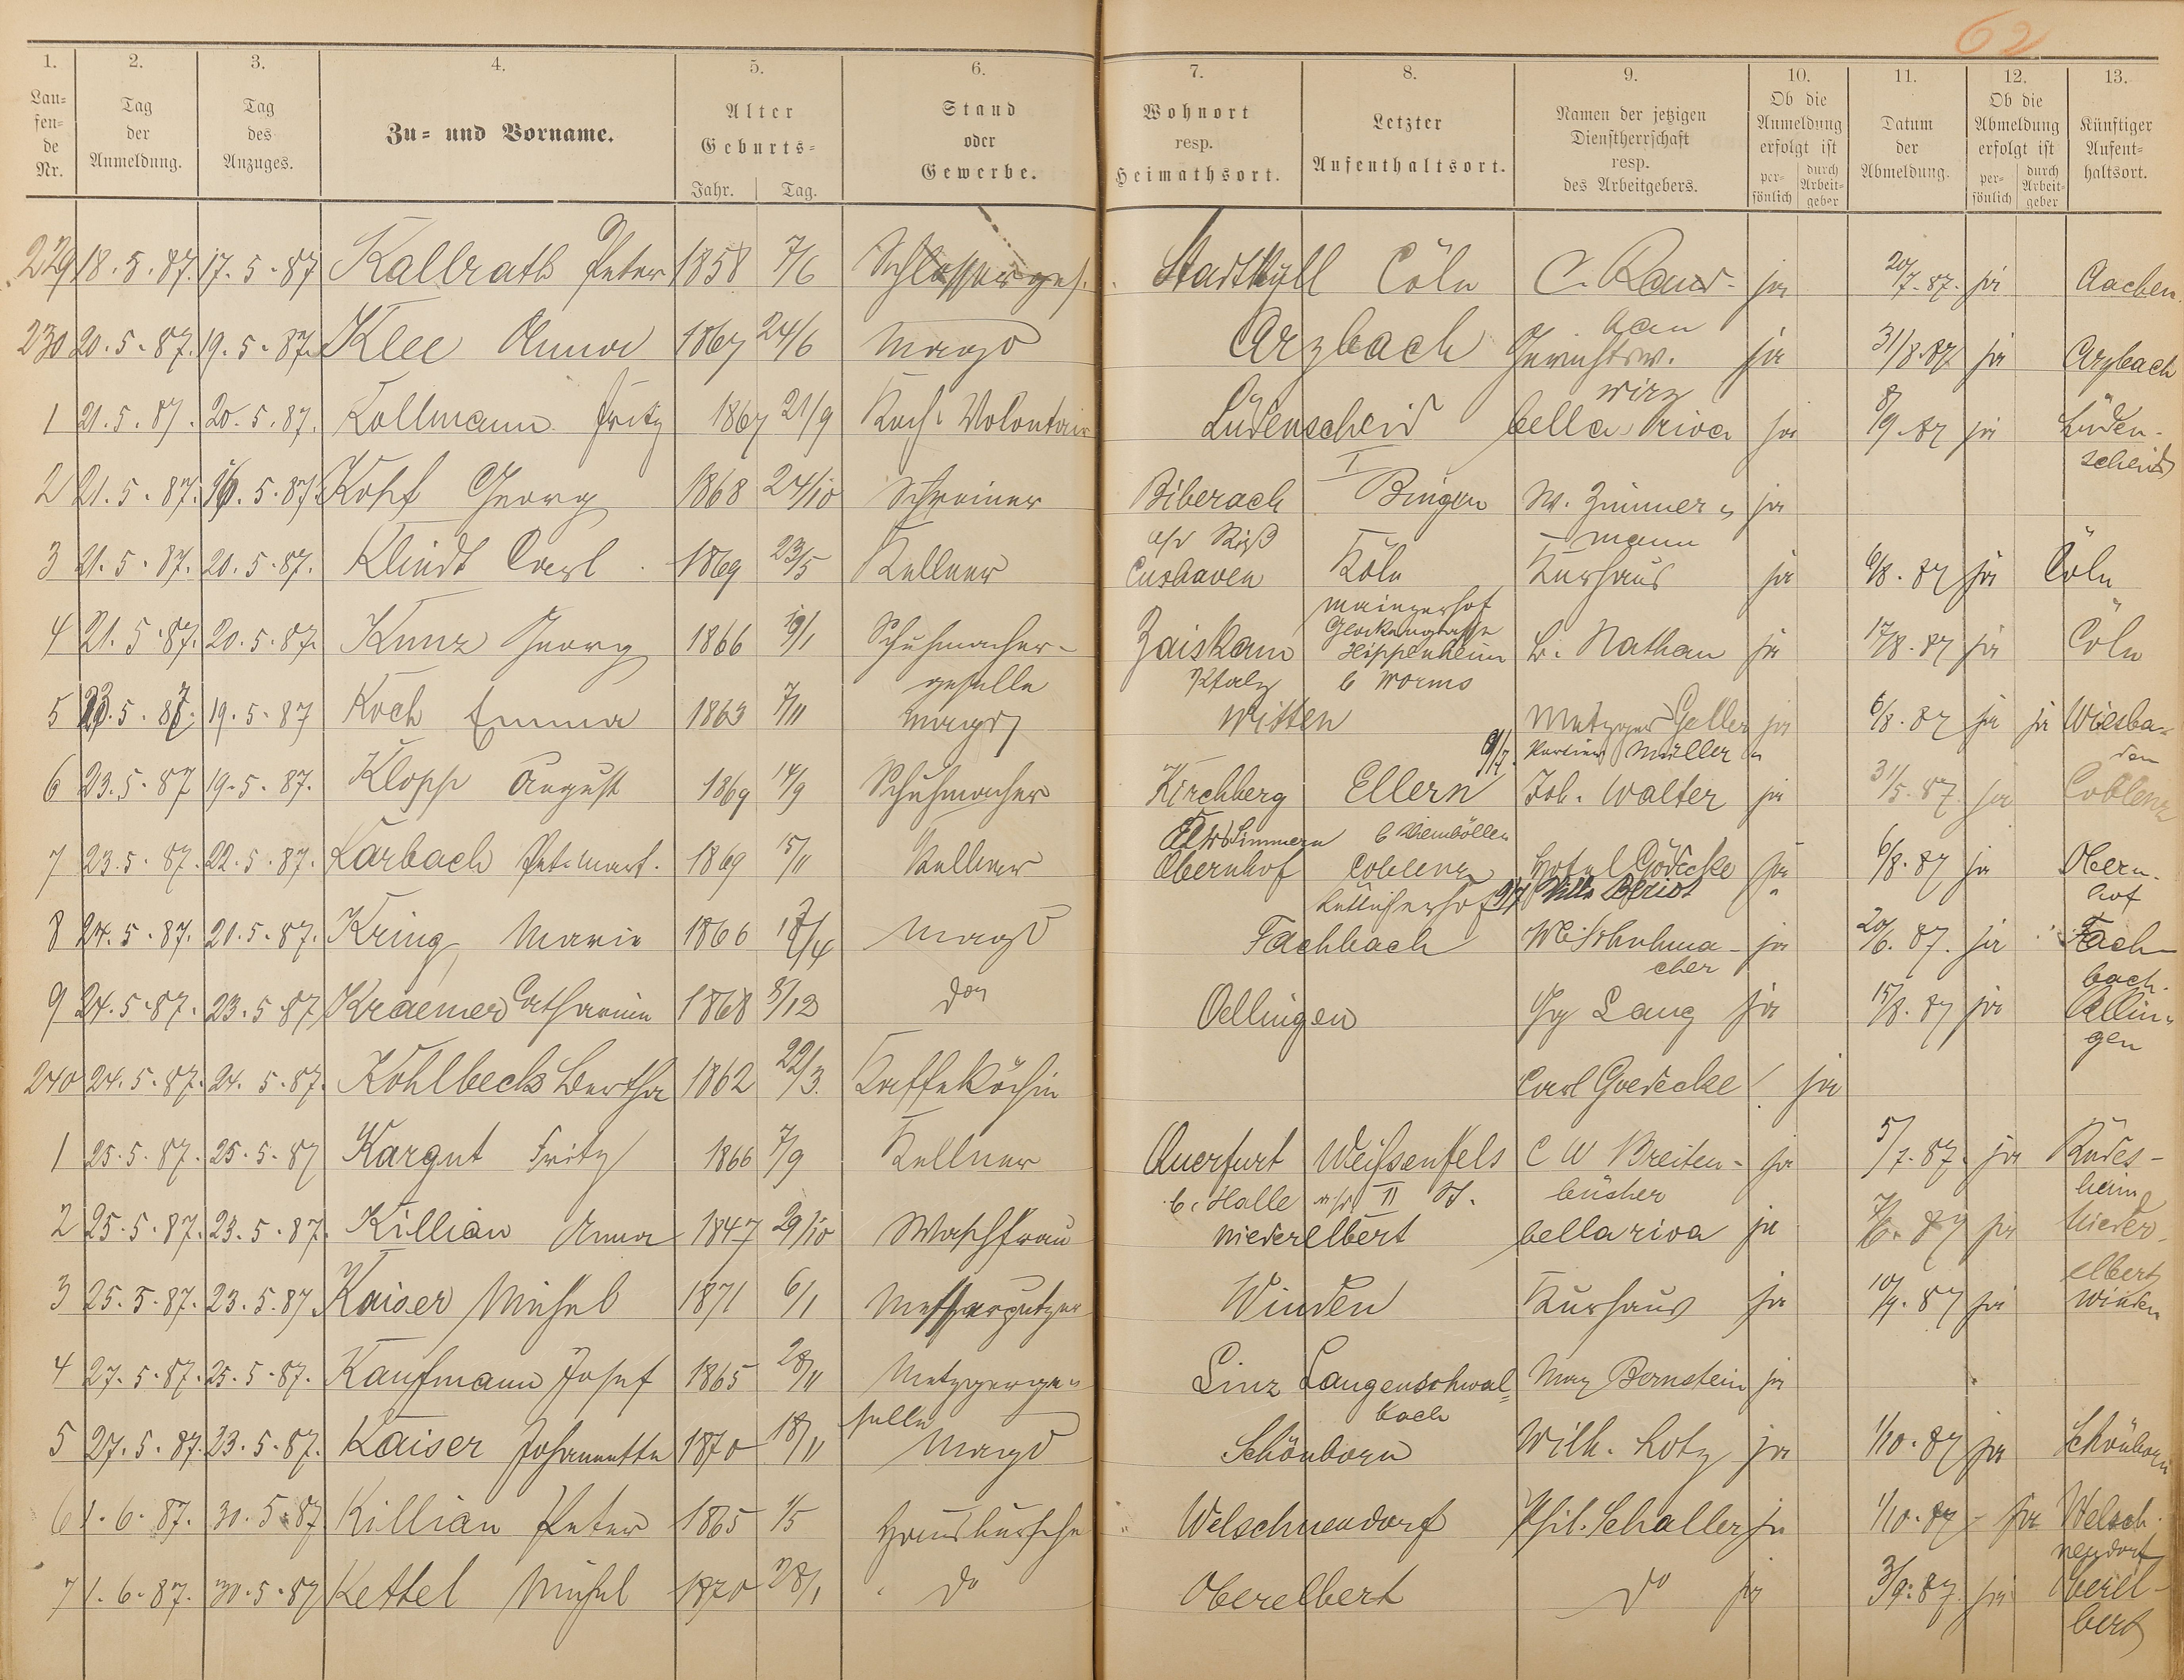 62
1. 2. 3. 4. 5. 6. 7. 8. 9. 10. 11. 12. 13.
Lau=fen=de Nr. Tag der Anmeldung. Tag des Anzuges. Zu= und Vorname. Alter Geburts= Jahr. Tag. Stand oder Gewerbe. Wohnort resp. Heimathsort. Letzter Aufenthaltsort. Namen der jetzigen Dienstherrschaft resp. des Arbeitgebers. Ob die Anmeldung erfolgt ist per=sönlich durch Arbeit=geber Datum der Abmeldung. Ob die Abmeldung erfolgt ist per=sönlich durch Arbeit=geber Künftiger Aufent=haltsort.
229 18.5.87. 17.5.87 Kallrath Peter 1858 7/6 Schlosserges. Stadtkyll Cöln ja 20/7.87. ja Aachen
230 20.5.87. 19.5.87. Klee Anna 1867 24/6 Magd Arzbach ja 31/8.87 ja Arzbach
1 21.5.87. 20.5.87. Kollmann Fritz 1867 21/9 Koch Volontair Lüdenscheid bella Riva ja 8/9.87 ja Lüden-
scheid
2 21.5.87. 16.5.87. Kopf Georg 1868 24/10 Schreiner Biberach Bingen W. Zimmer= ja
a/d Riß mann
3 21.5.87. 20.5.87. Klindt Carl 1869 23/5 Kellner Cuxhaven Köln Kurhaus ja 6/8.87 ja Cöln
Mainzerhof
Glockengasse
4 21.5.87. 20.5.87. Kunz Georg 1866 19/1 Schuhmacher- Zaiskam Hippenheim L. Nathan ja 17/8.87 ja Cöln
geselle Pfalz b Worms
5 23.5.87. 19.5.87 Koch Emma 1863 7/11 Magd Witten Metzger Geller ja 6/8.87 ja ja Wiesba-
den
Portier Müller
6 23.5.87 19.5.87. Klopp August 1869 14/9 Schuhmacher Kirchberg Ellern Joh. Walter ja 31/5.87. ja Coblenz
Simmern b Riemböllen
7 23.5.87. 22.5.87. Karbach Pet. Mart. 1869 15/11 Kellner Obernhof Coblenz Hotel Gödecke ja 6/8.87 ja Obern-
hof
Villa Beriot
8 24.5.87. 21.5.87. Kring Marie 1866 Magd Fachbach W. Schuhma- ja 20/6.87. ja Fach-
cher bach.
9 24.5.87. 23.5.87 Kraemer Catharine 1868 8/12 do Oellingen Gg Lang ja 15/8.87 ja Oellin-
gen
240 24.5.87. 24.5.87. Kohlbecks Bertha 1862 22/3. Kaffeköchin Carl Goedecke ja
1 25.5.87. 25.5.87 Kargut Fritz 1866 7/9 Kellner Querfurt Weißenfels C W Breiten- ja 5/7.87. ja Rüdes-
b. Halle bücher heim
2 25.5.87. 23.5.87. Killian Anna 1847 29/10 Waschfrau Niederelbert bella riva ja 7/6.87 ja Nieder-
elbert
3 25.5.87. 23.5.87. Kaiser Michel 1871 6/1 Messerputzer Winden Kurhaus ja 10/9.87 ja Winden
4 27.5.87. 25.5.87. Kaufmann Josef 1865 28/11 Metzgerge= Linz Langenschwal= Max Bernstein ja
selle bach
5 27.5.87. 23.5.87. Kaiser Johannette 1870 18/11 Magd Schönborn Wilh. Lotz ja 1/10.87 ja Schönborn
6 1.6.87. 30.5.87 Killian Peter 1865 1/5 Hausbursche Welschneudorf Phil. Schaller ja 1/10.87 - ja Welsch.
neudorf
7 1.6.87. 30.5.87 Kettel Michel 1870 28/1 do Oberelbert do ja 3/9.87. ja Oberel-
bert